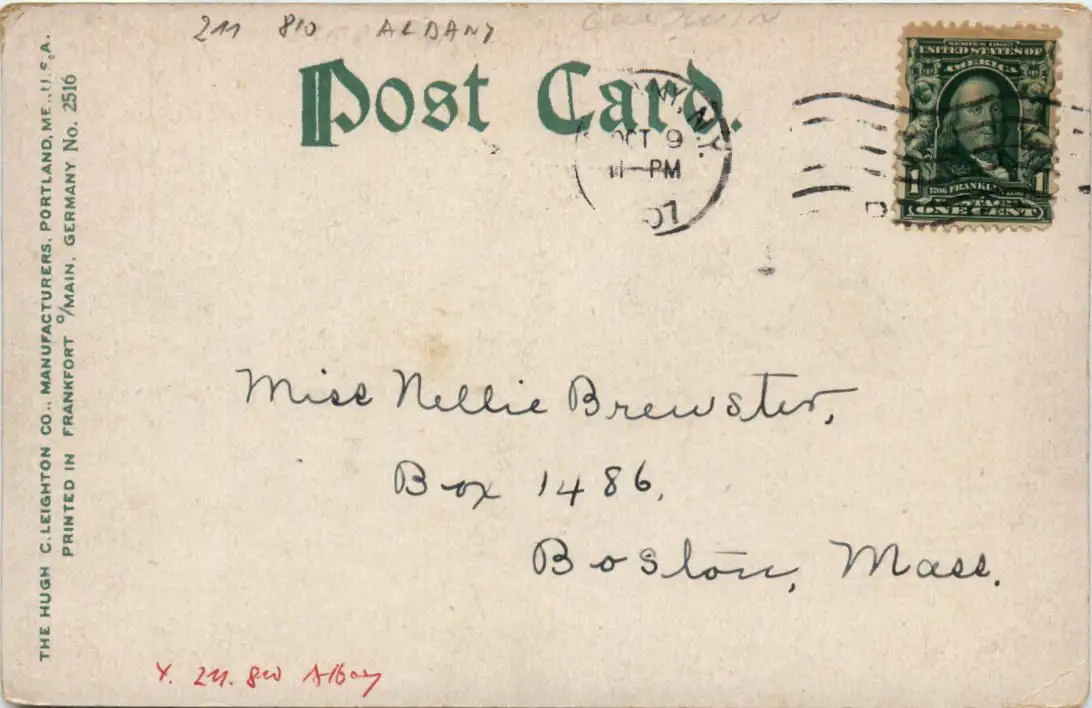 211 810 ALBANY
Post Card.
NY, N.Y.
OCT 9
11-PM
07
SERIES 1902
UNITED STATES OF
AMERICA
1 FRANKLIN 1
ONE CENT
THE HUGH C. LEIGHTON CO., MANUFACTURERS, PORTLAND, ME., U.S.A.
PRINTED IN FRANKFORT o/MAIN, GERMANY No. 2516
Miss Nellie Brewster,
Box 1486,
Boston, Mass.
211. 810 Albany